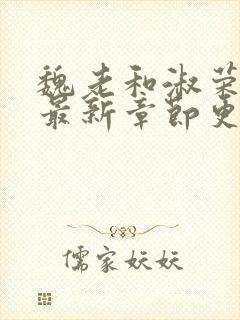 魏老和淑荣
最新章节更
儒家妖妖